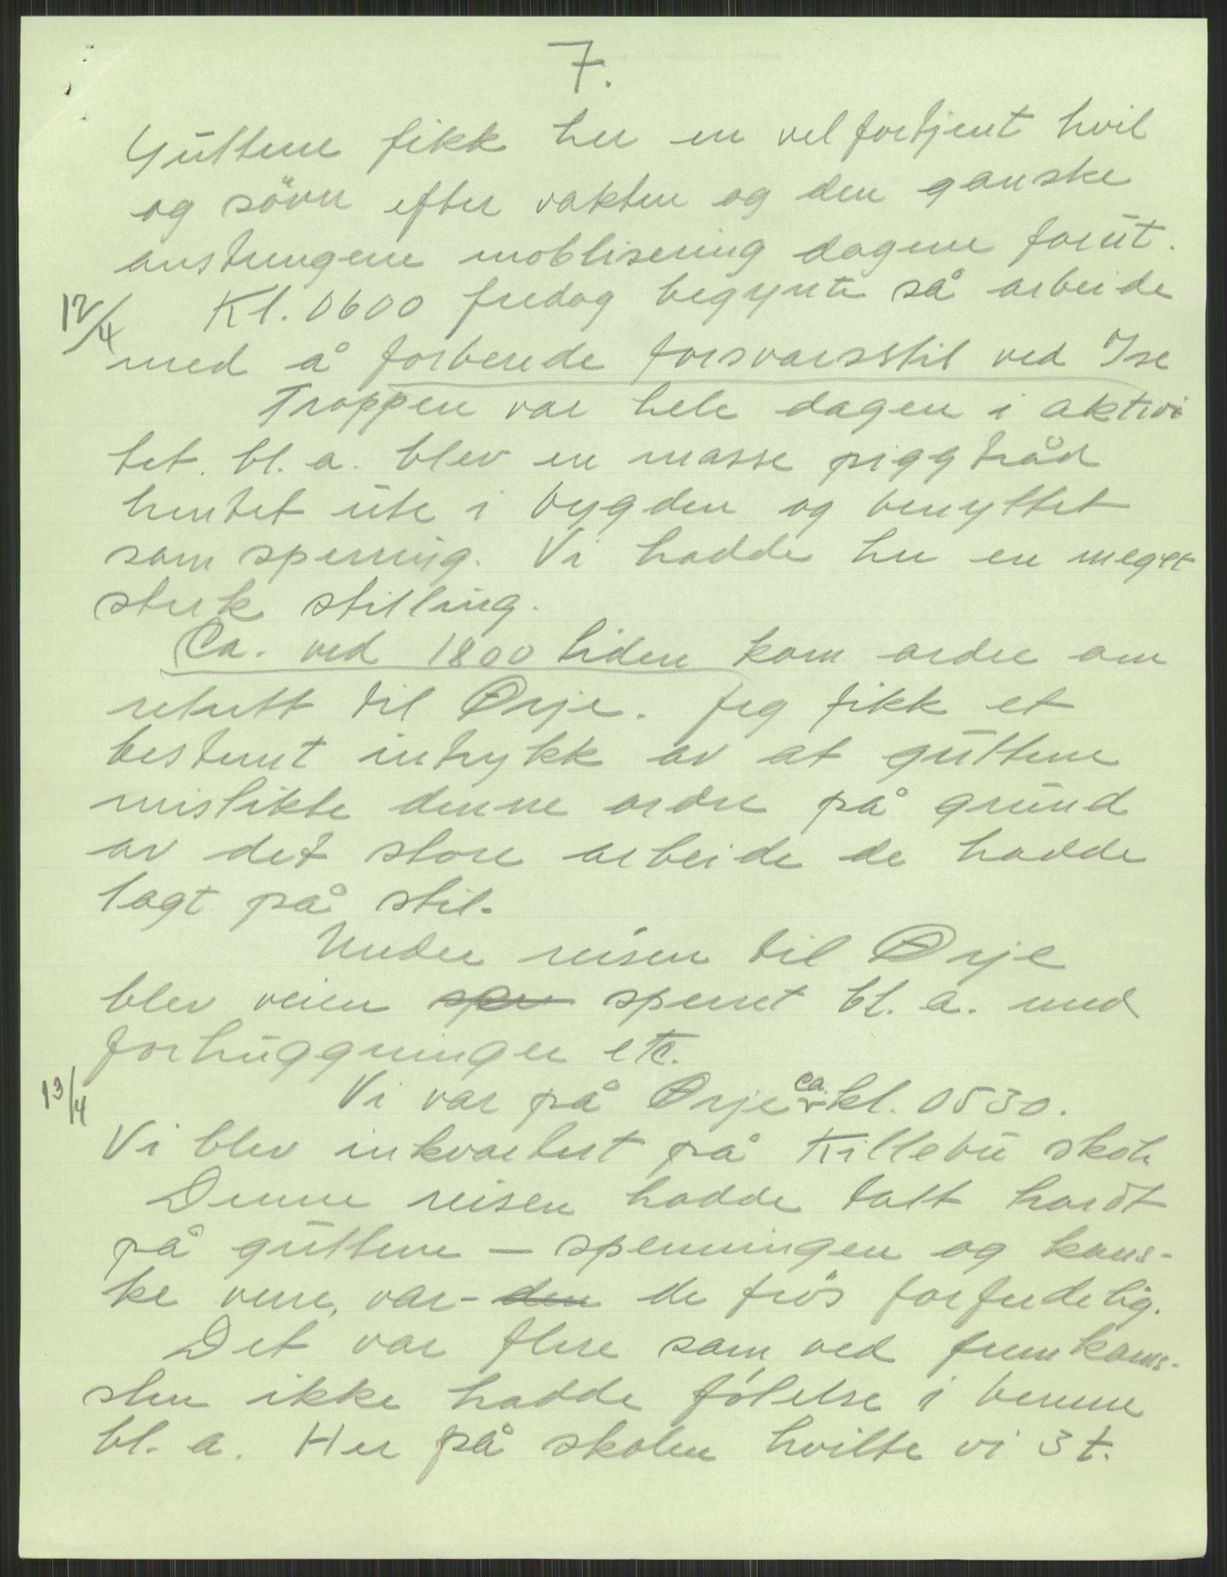 7.
Guttene fikk her en vel fortjent hvil
og søvn efter vakten og den ganske
anstrengene moblisering dagene forut.
12/4 Kl. 0600 fredag begynte så arbeide
med å forberede forsvarsstil ved Ise
Troppen var hele dagen i aktivi
tet. bl. a. blev en masse piggtråd
hentet ute i bygden og benyttet
som sperring. Vi hadde her en meget
sterk stilling.
Ca. ved 1800 tiden kom ordre om
retrett til Ørje. Jeg fikk et
bestemt intrykk av at guttene
mislikte denne ordre på grund
av det store arbeide de hadde
lagt på stil.
Under reisen til Ørje
blev veien spe sperret bl. a. med
forhuggninger etc.
13/4 Vi var på Ørje ca. kl. 0530.
Vi blev inkvartert på Killebu skole
Denne reisen hadde tatt hardt
på guttene — spenningen og kans-
ke verre, var - den de frøs forferdelig.
Det var flere som ved fremkom-
sten ikke hadde følelse i benene
bl. a. Her på skolen hvilte vi 3 t.